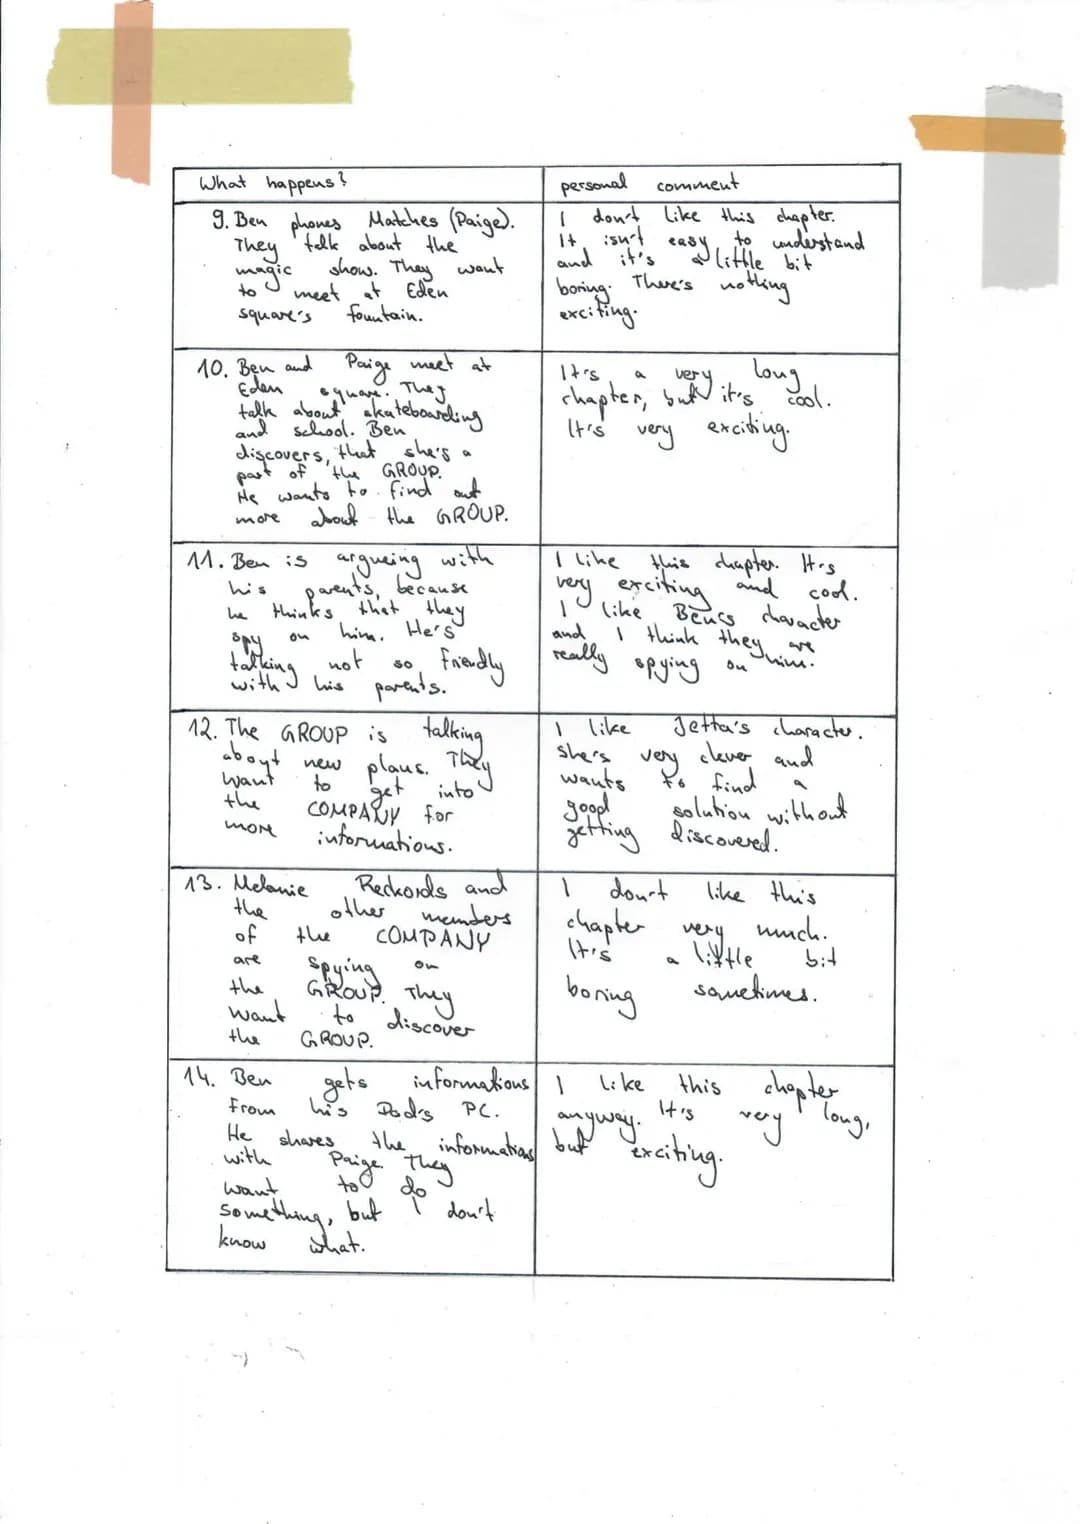 What happens?
personal comment
9. Ben phones Matches (Paige).
They talk about the
magic show. They want
to meet at Eden
square's fountain.
I don't like this chapter.
It isn't easy to understand
and it's a little bit
boring. There's nothing
exciting.
10. Ben and Paige meet at
Eden square. They
talk about skateboarding
and school. Ben
discovers, that she's a
part of the GROUP.
He wants to find out
more about the GROUP.
It's a very long
chapter, but it's cool.
It's very exciting.
11. Ben is argueing with
his parents, because
he thinks that they
spy on him. He's
talking not so friendly
with his parents.
I like this chapter. It's
very exciting and cool.
I like Ben's character
and I think they are
really spying on him.
12. The GROUP is talking
about new plans. They
want to get into
the COMPANY for
more informations.
I like Jetta's character.
She's very clever and
wants to find a
good solution without
getting discovered.
13. Melanie Reckords and
the other members
of the COMPANY
are spying on
the GROUP. They
want to discover
the GROUP.
I don't like this
chapter very much.
It's a little bit
boring sometimes.
14. Ben gets informations
from his Dad's PC.
He shares the informations
with Paige. They
want to do
something, but I don't
know what.
I like this chapter
anyway. It's very long,
but exciting.